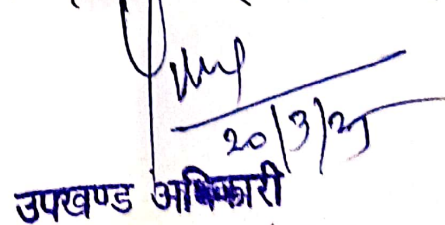 20/3/25
उपखण्ड अधिकारी